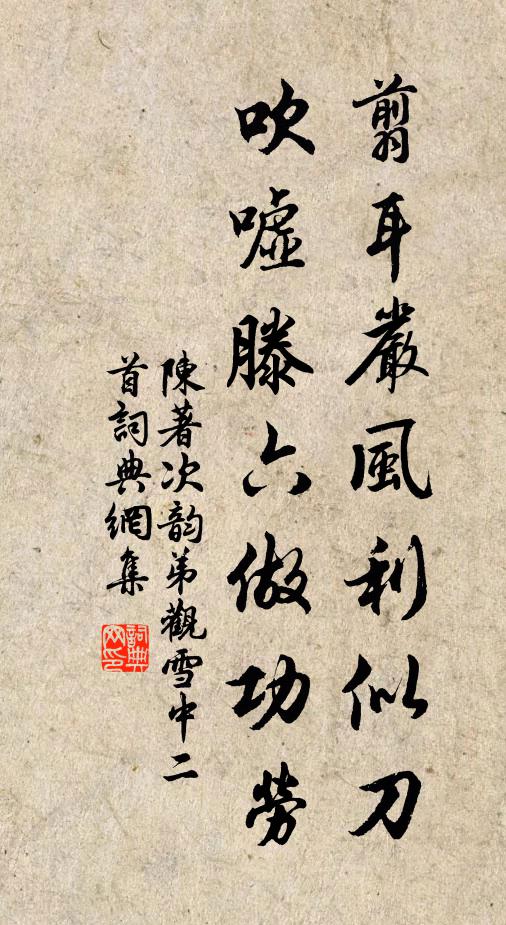 翦耳嚴風利似刀
吹噓滕六做功勞
陳著次韵弟觀雪中二
首詞典網集
詞典
网印